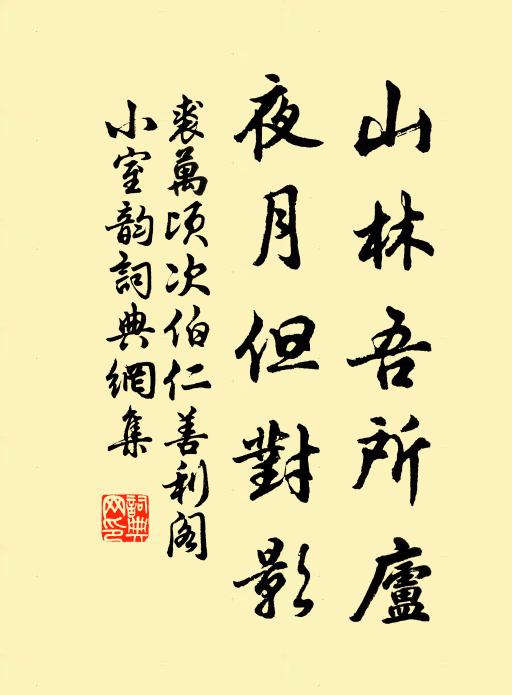 山林吾所廬
夜月但對影
裘萬頃次伯仁善利阁
小室韵詞典網集
詞典網印